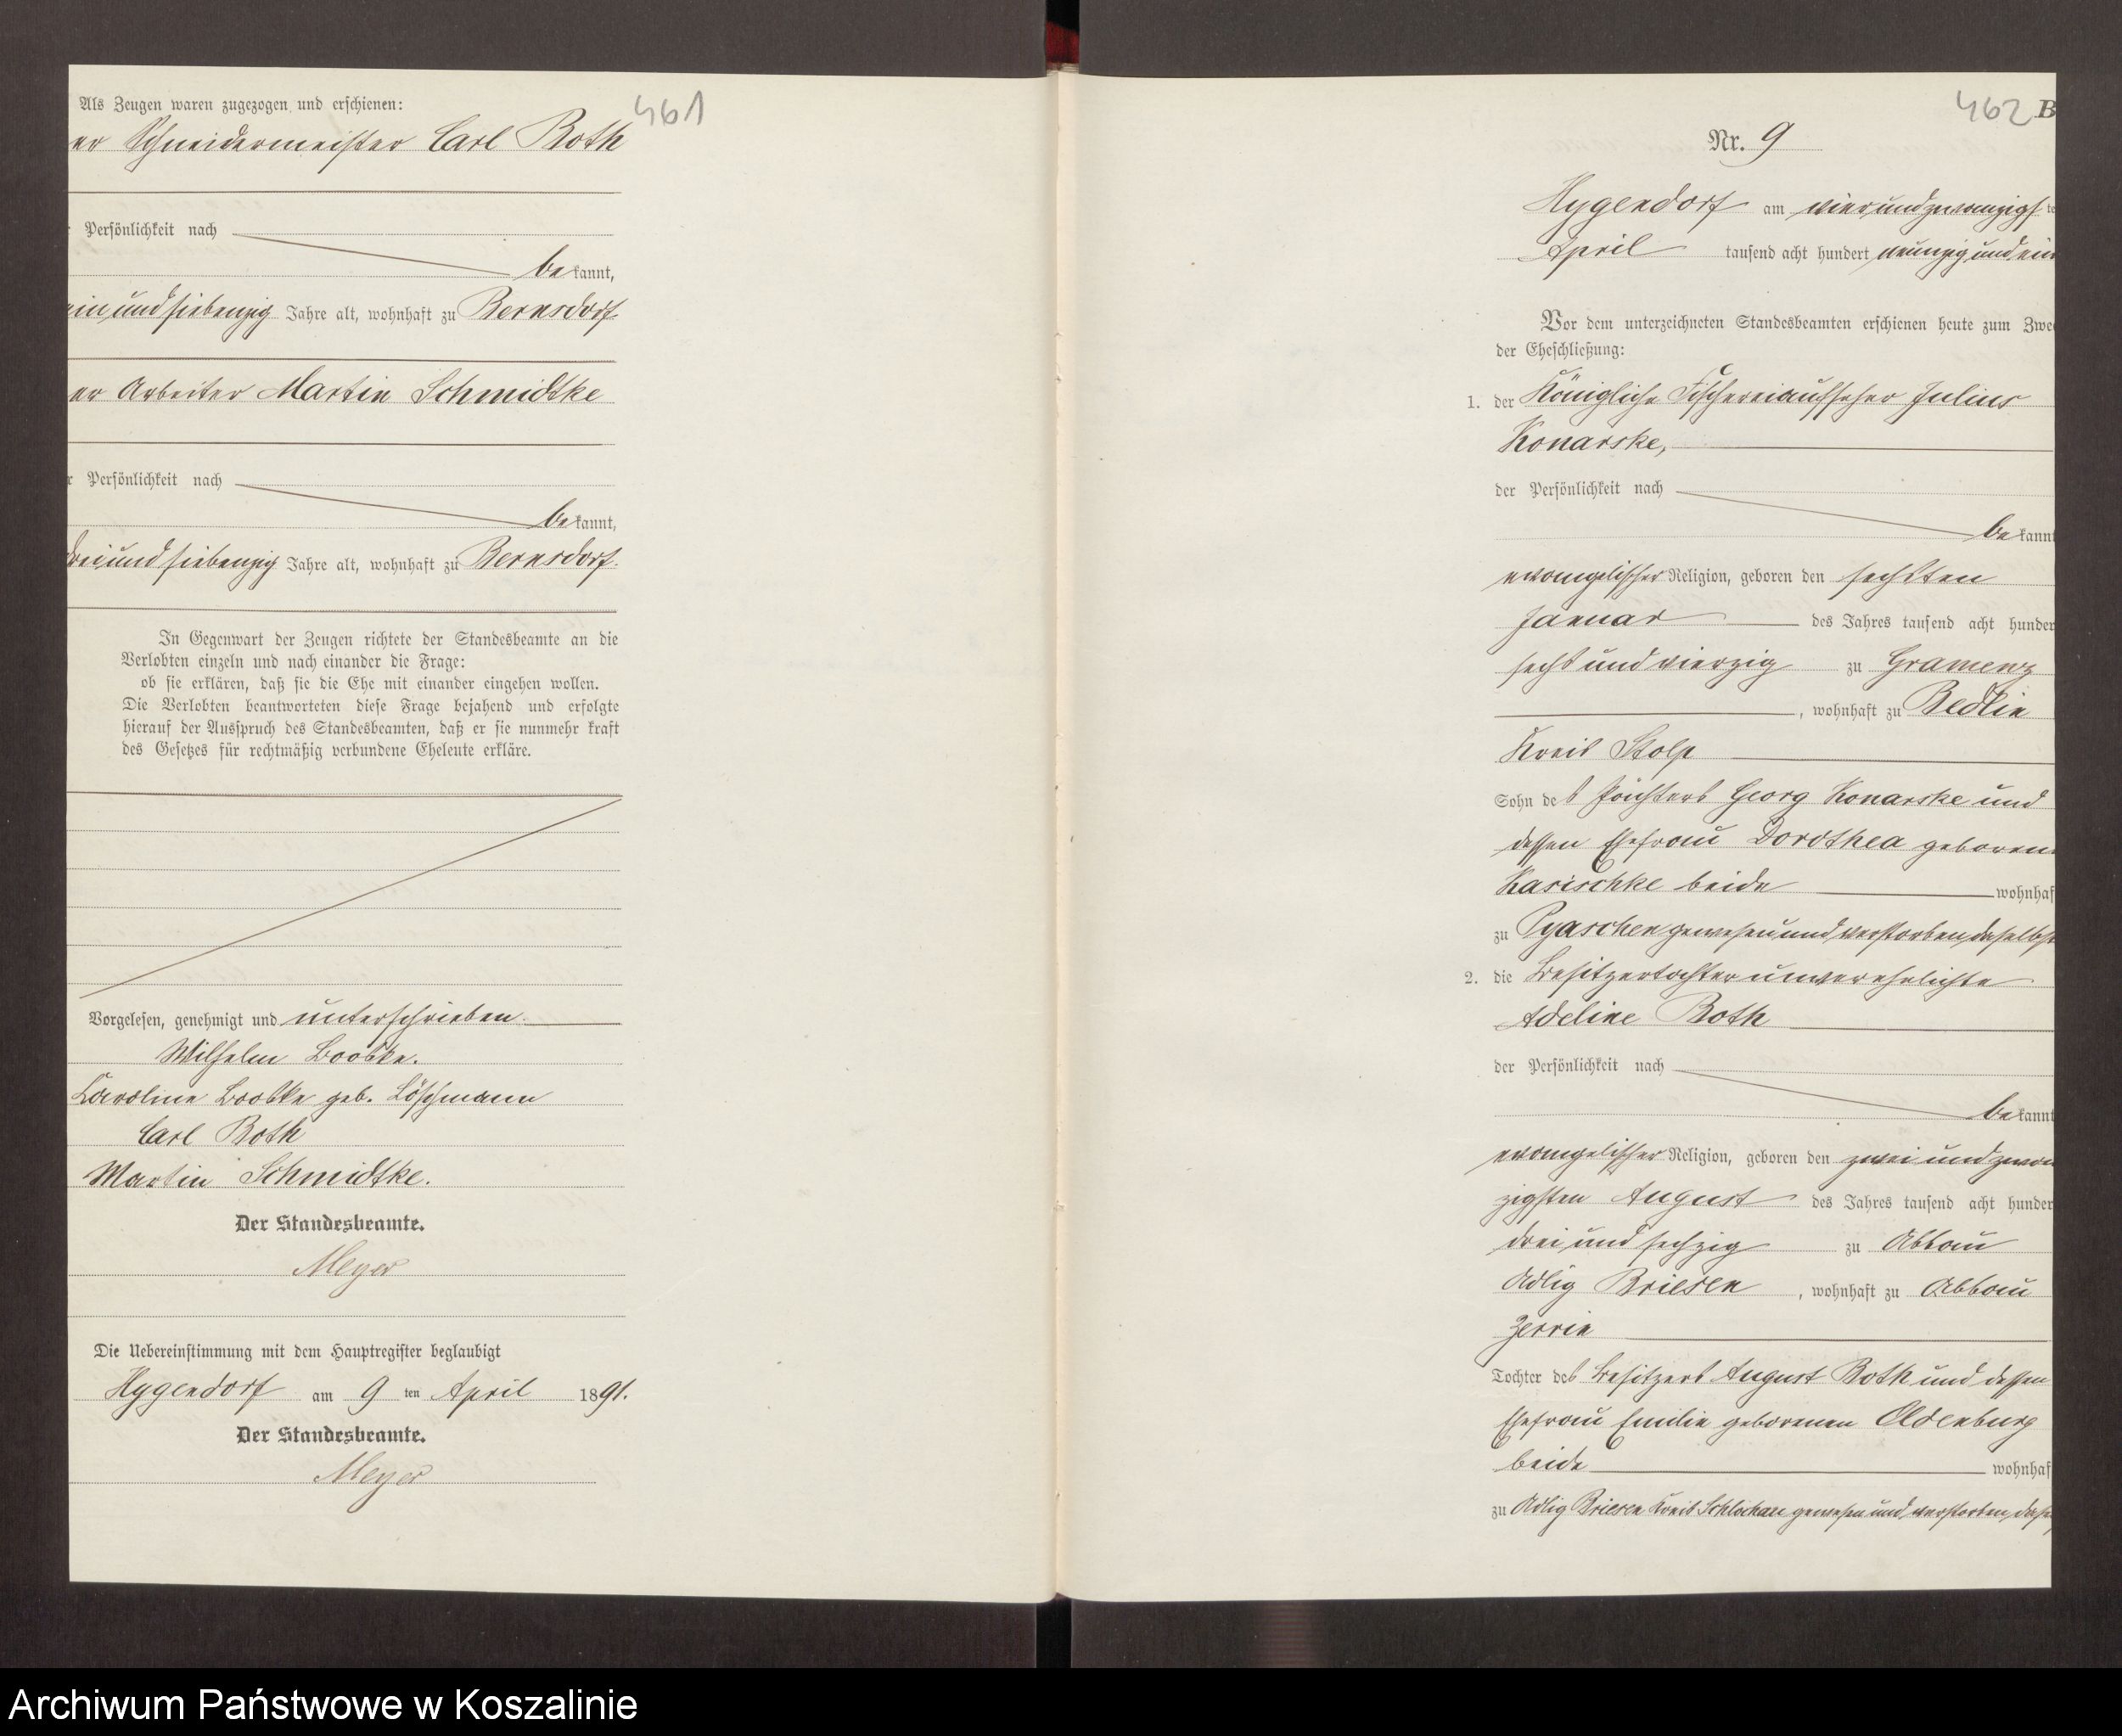 461
Als Zeugen waren zugezogen und erschienen:
er Schneidermeister Carl Both
Persönlichkeit nach
bekannt,
ein und siebenzig Jahre alt, wohnhaft zu Bernsdorf
er Arbeiter Martin Schmidtke
r Persönlichkeit nach
bekannt,
drei und siebenzig Jahre alt, wohnhaft zu Bernsdorf.
In Gegenwart der Zeugen richtete der Standesbeamte an die
Verlobten einzeln und nach einander die Frage:
ob sie erklären, daß sie die Ehe mit einander eingehen wollen.
Die Verlobten beantworteten diese Frage bejahend und erfolgte
hierauf der Ausspruch des Standesbeamten, daß er sie nunmehr kraft
des Gesetzes für rechtmäßig verbundene Eheleute erkläre.
Vorgelesen, genehmigt und unterschrieben.
Wilhelm
Caroline geb. Löschmann
Carl Both
Martin Schmidtke.
Der Standesbeamte.
Meyer
Die Uebereinstimmung mit dem Hauptregister beglaubigt
Hygendorf am 9 ten April 1891.
Der Standesbeamte.
Meyer
462 B
Nr. 9
Hygendorf am vier und zwanzigst te
April tausend acht hundert neunzig und ein
Vor dem unterzeichneten Standesbeamten erschienen heute zum Zwe
der Eheschließung:
1. der Königliche Fischereiaufseher Julius
Konarske,
der Persönlichkeit nach
bekannt
evangelischer Religion, geboren den sechsten
Januar des Jahres tausend acht hunder
sechs und vierzig zu Gramenz
, wohnhaft zu Bedlin
Kreis Stolp
Sohn des Pächters Georg Konarske und
dessen Ehefrau Dorothea geboren
Kasischke beide wohnhaf
zu Pyaschen gewesen und verstorben daselbst
2. die Besitzertochter unverehelichte
Adeline Both
der Persönlichkeit nach
bekannt
evangelischer Religion, geboren den zwei und zwan
zigsten August des Jahres tausend acht hunder
drei und sechzig zu Abbau
Adlig Briesen, wohnhaft zu Abbau
Zerrin
Tochter des Besitzers August Both und dessen
Ehefrau Emilie geborenen Oldenburg
beide wohnhaf
zu Adlig Briesen Kreis Schlochau gewesen und verstorben dase
Archiwum Państwowe w Koszalinie